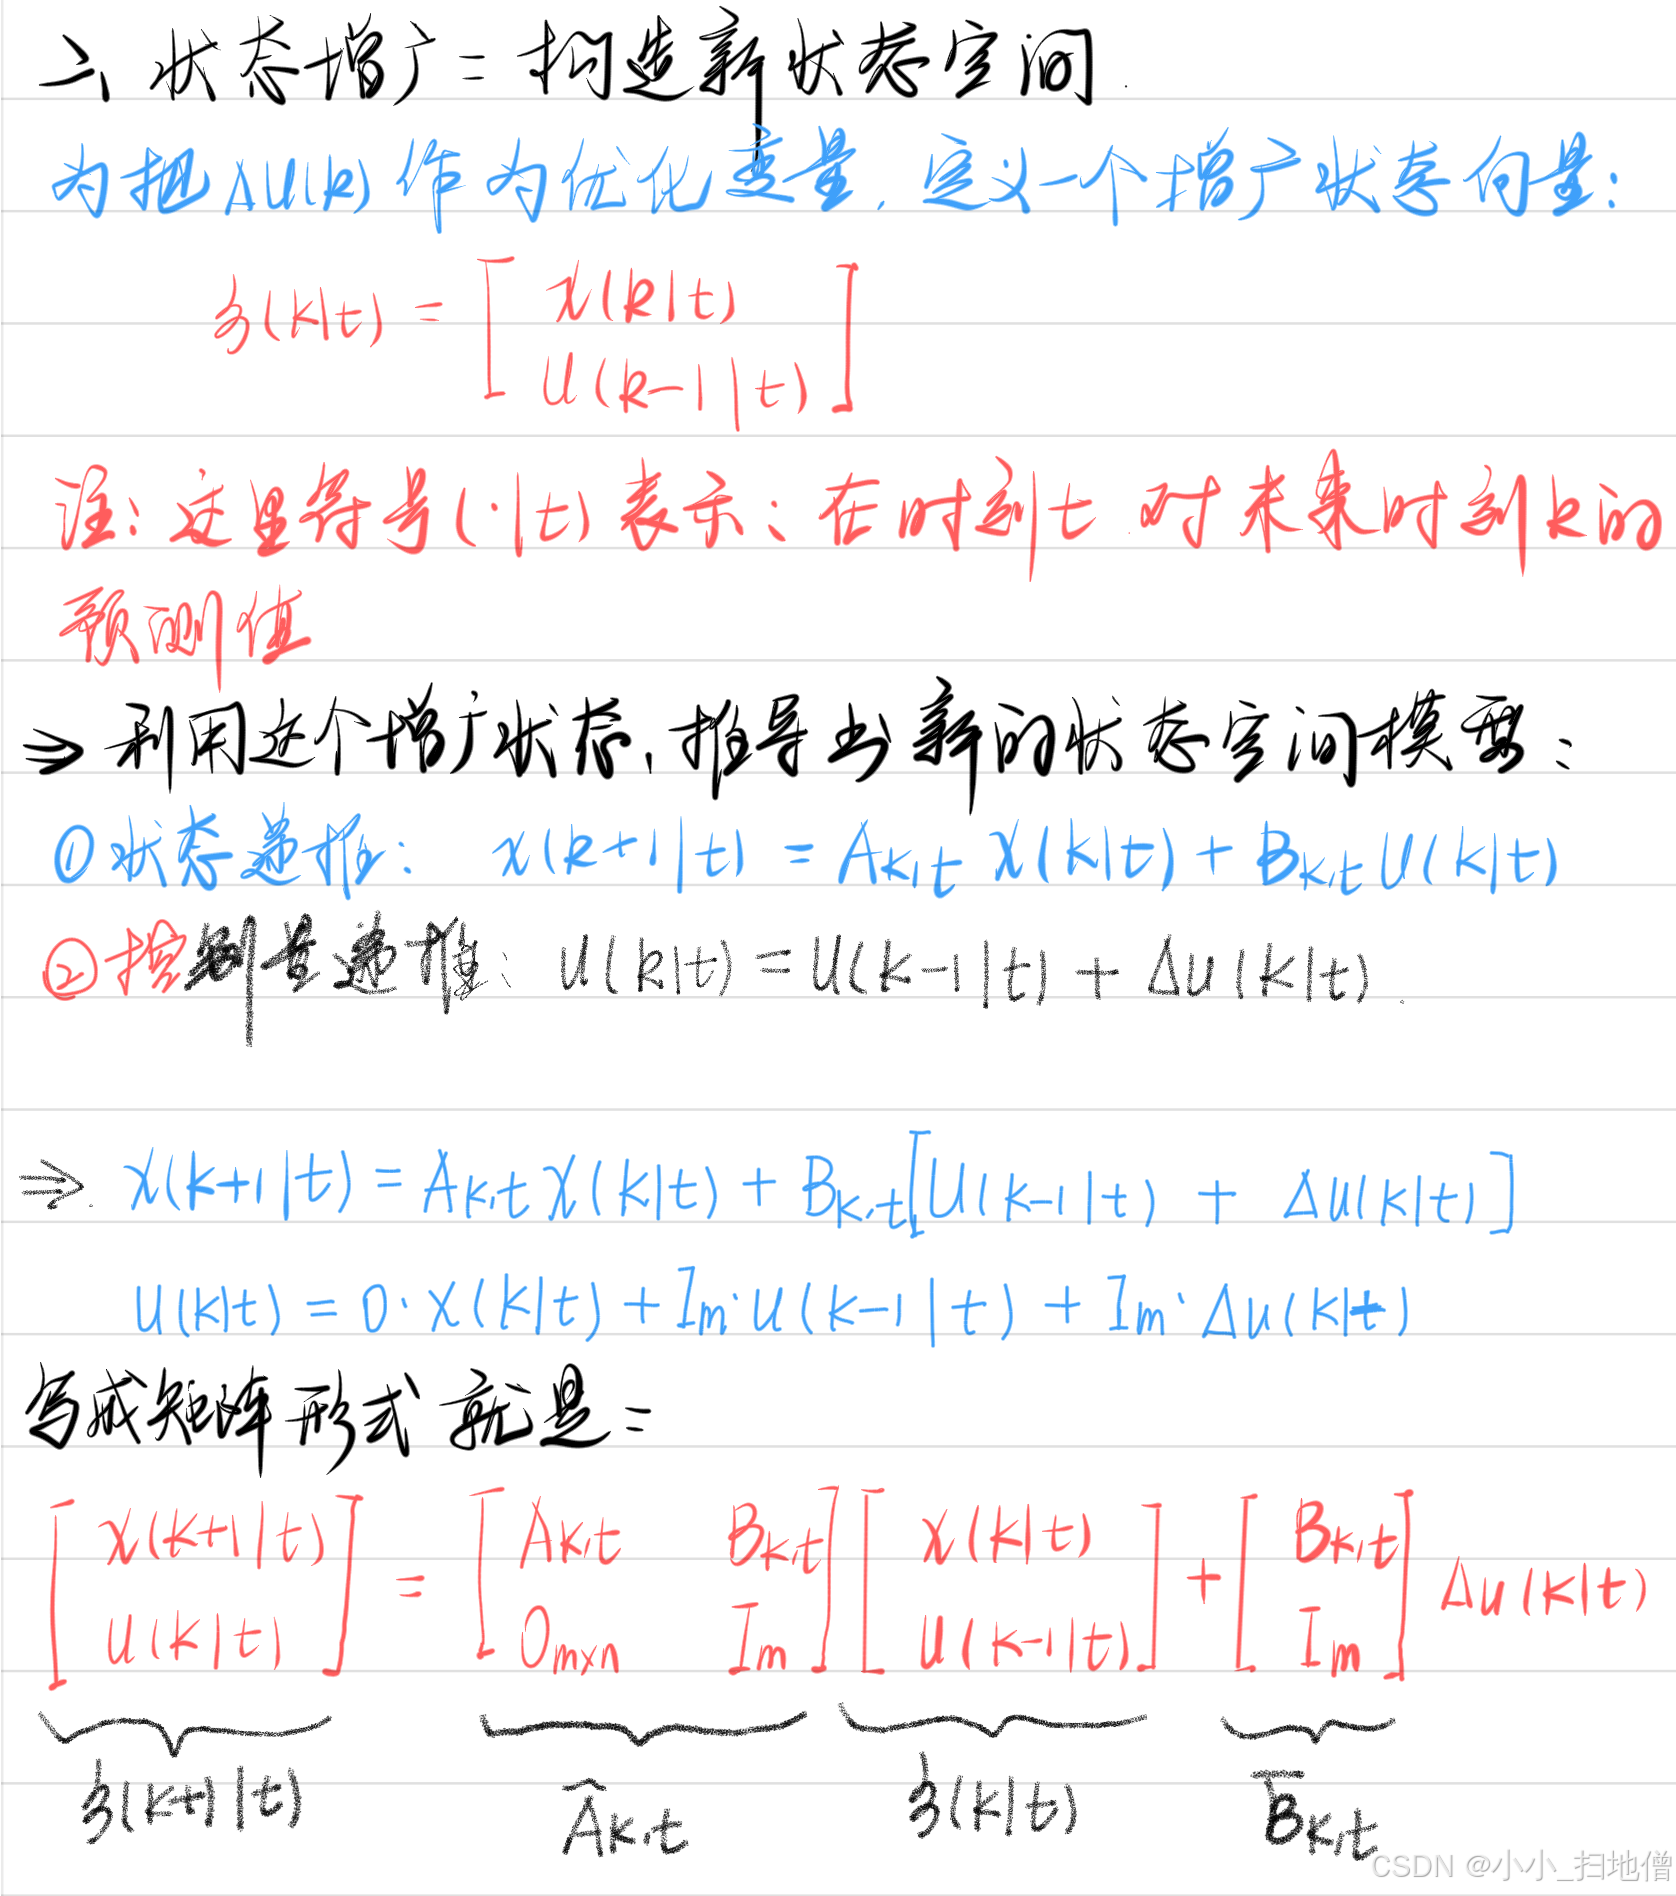 二、状态增广：构造新状态空间.
为把ΔU(k)作为优化变量，定义一个增广状态向量：
ξ(k|t) = [ x(k|t)
U(k-1|t) ]
注：这里符号(·|t)表示：在时刻t 对未来时刻k的
预测值
⇒ 利用这个增广状态，推导出新的状态空间模型：
① 状态递推： x(k+1|t) = A_{k,t} x(k|t) + B_{k,t} U(k|t)
② 控制量递推： U(k|t) = U(k-1|t) + Δu(k|t).
⇒ x(k+1|t) = A_{k,t} x(k|t) + B_{k,t} [U(k-1|t) + Δu(k|t)]
U(k|t) = 0·x(k|t) + I_m·U(k-1|t) + I_m·Δu(k|t)
写成矩阵形式就是：
[ x(k+1|t) ; U(k|t) ] = [ A_{k,t} B_{k,t} ; 0_{m×n} I_m ] [ x(k|t) ; U(k-1|t) ] + [ B_{k,t} ; I_m ] Δu(k|t)
ξ(k+1|t) Â_{k,t} ξ(k|t) B̄_{k,t}
CSDN @小小_扫地僧